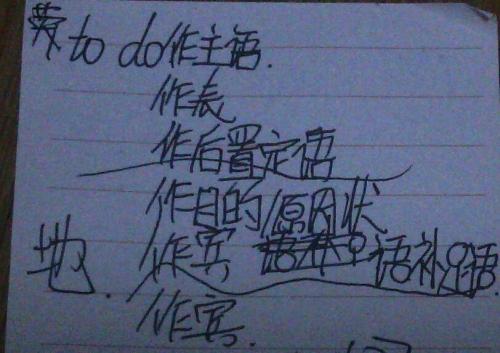 to do作主语.
作表
作后置定语
作目的/原因状
地. 作宾 语补足语.
作宾.